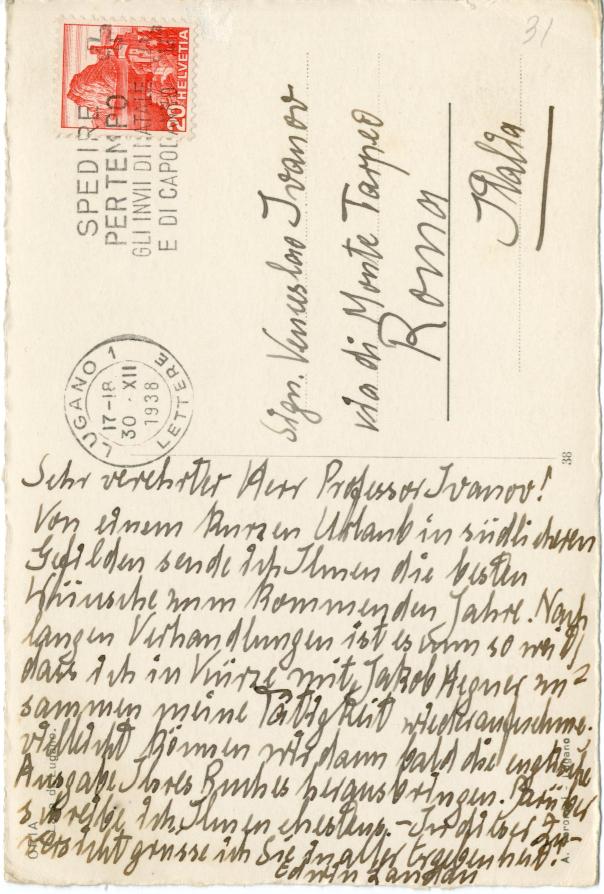 31
20 HELVETIA
SPEDIRE
PER TEMPO
GLI INVII DI NATALE
E DI CAPOD
LUGANO 1
17-18
30.XII
1938
LETTERE
Sign. Venceslao Ivanov
via di Monte Tarpeo
Roma
Italia
38
Sehr verehrter Herr Professor Ivanov!
Von einem kurzen Urlaub in südlicheren
Gefilden sende ich Ihnen die besten
Wünsche zum kommenden Jahre. Nach
langen Verhandlungen ist es nun so weit,
dass ich in Kürze mit Jakob Hegner zu-
sammen meine Tätigkeit wiederaufnehme.
Vielleicht können wir dann bald die englische
Ausgabe Ihres Buches herausbringen. Darüber
schreibe ich Ihnen ehestens. - In dieser Zu-
versicht grüsse ich Sie in aller Ergebenheit!
Edwin Landau
ORIA
Lugano